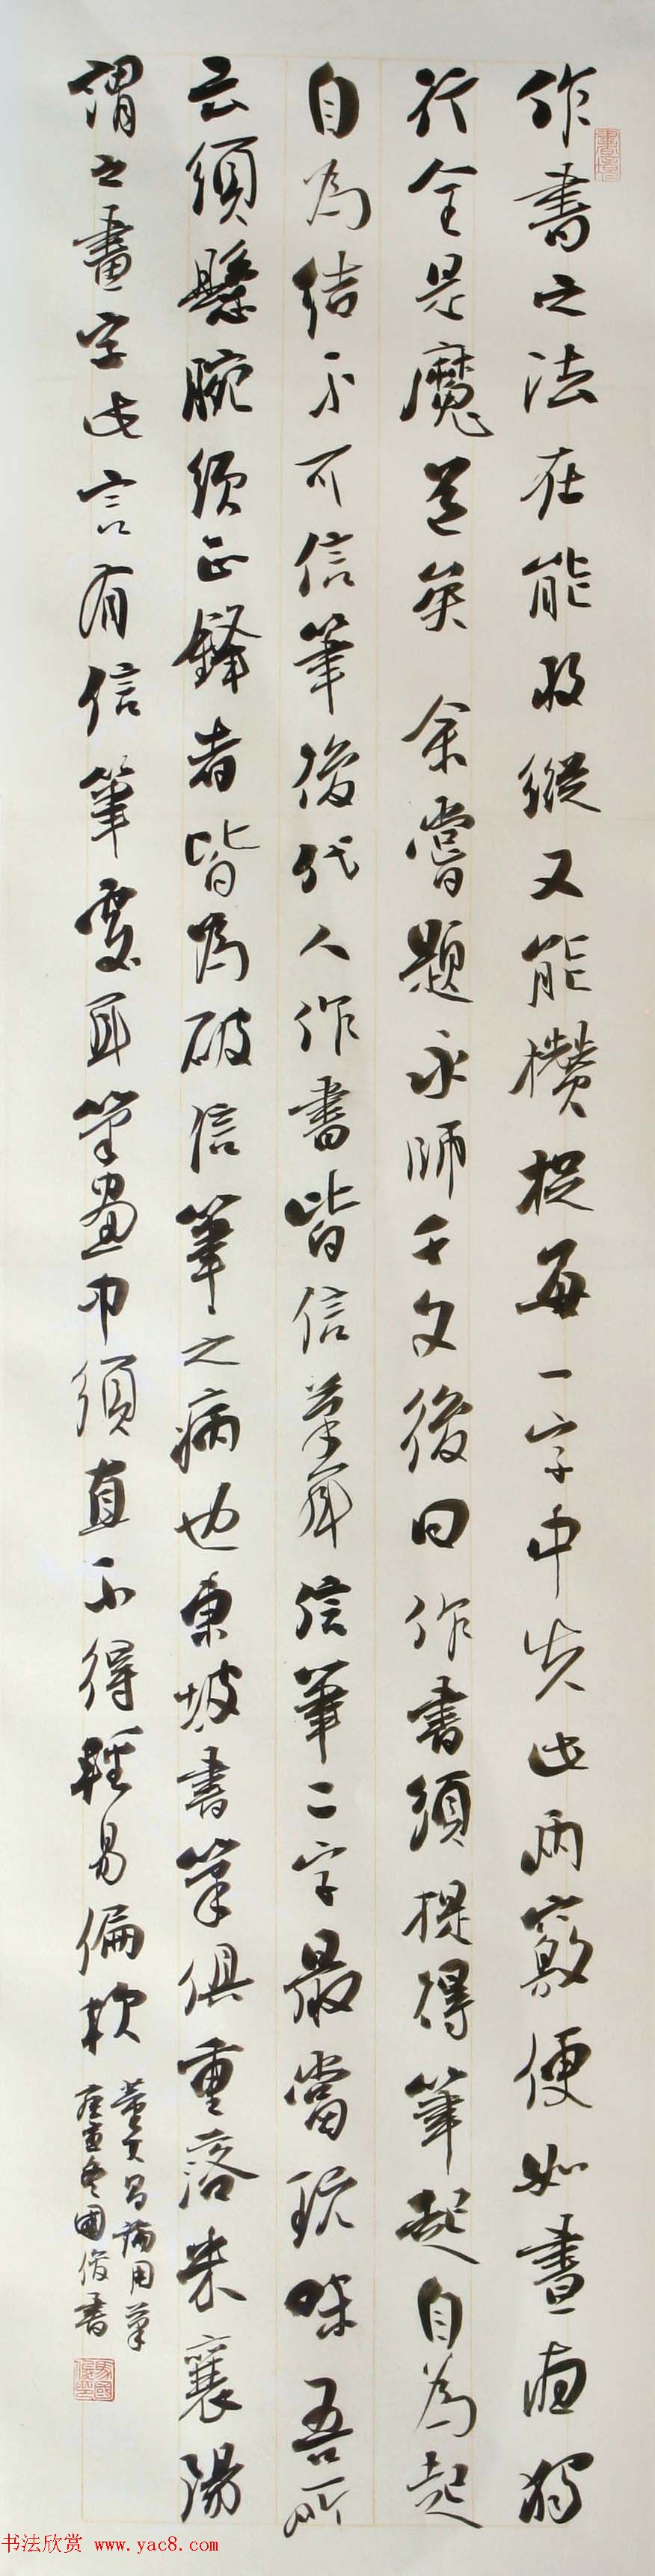 作書之法在能放縱又能攢捉每一字中失此兩竅便如晝夜獨
行全是魔道矣 余嘗題永師千文後曰作書須提得筆起自為起
自為結不可信筆後代人作書皆信筆耳信筆二字最當玩味吾所
云須懸腕須正鋒者皆為破信筆之病也東坡書筆俱重落米襄陽
謂之畫字此言有信筆處耳筆畫中須直不得輕易偏軟
董其昌論用筆
國俊書
书法欣赏 www.yac8.com